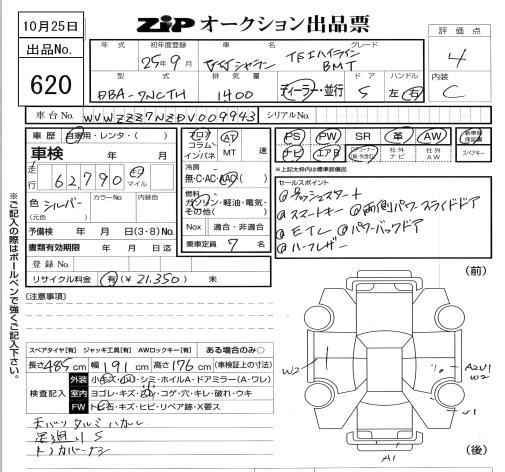 10月25日
ZIP オークション出品票
出品No.
620
年式 初年度登録 車名 グレード
25年9月 VWシャラン TSIハイライン
BMT
型式 排気量 ドア ハンドル
DBA-7NCTH 1400 ディーラー・並行 5 左 右
評価点
4
内装
C
車台No. WVWZZZ7NZDV009943 シリアルNo.
車歴 自家用・レンタ・( )
車検 年 月
走行 62,790 キロ マイル
色 シルバー カラーNo. 内装色
(元色)
予備検 年 月 日(3・8)No.
書類有効期限 年 月 日迄
登録No.
リサイクル料金 有(¥21,350) 未
フロア コラム インパネ
AT MT 速
冷房
無・C・AC・AAC
燃料
ガソリン・軽油・電気・その他( )
Nox 適合・非適合
乗車定員 7 名
PS PW SR 革 AW 新車時保証書
ナビ エアB 社外ナビ 社外AW スペアキー
※上記太枠内は標準装備品
セールスポイント
@プッシュスタート
@スマートキー @両側パワースライドドア
@ETC @パワーバックドア
@ハーフレザー
※ご記入の際はボールペンで強くご記入下さい。
(注意事項)
(前)
スペアタイヤ[有] ジャッキ工具[有] AWロックキー[有] ある場合のみ○
長さ485cm 幅191cm 高さ176cm (車検証上の寸法)
検査記入
外装 小キズ・小凹・シミ・ホイルA・ドアミラー(A・ワレ)
室内 ヨゴレ・キズ・スレ・コゲ・穴・キレ・破れ・ウキ
FW トビ石・キズ・ヒビ・リペア跡・X要ス
天バリタルミハガレ
足廻りS
トノカバーナシ
W2
A2U1
W2
U1
A1
(後)